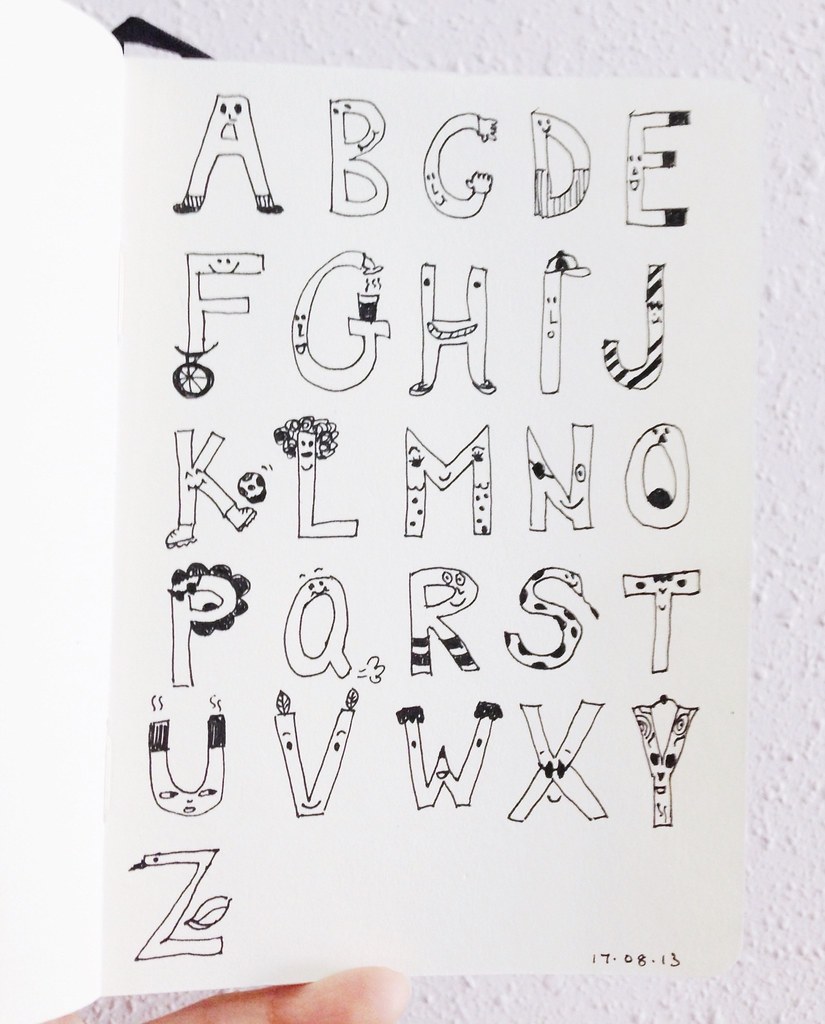 A B C D E
F G H I J
K L M N O
P Q R S T
U V W X Y
Z
17.08.13